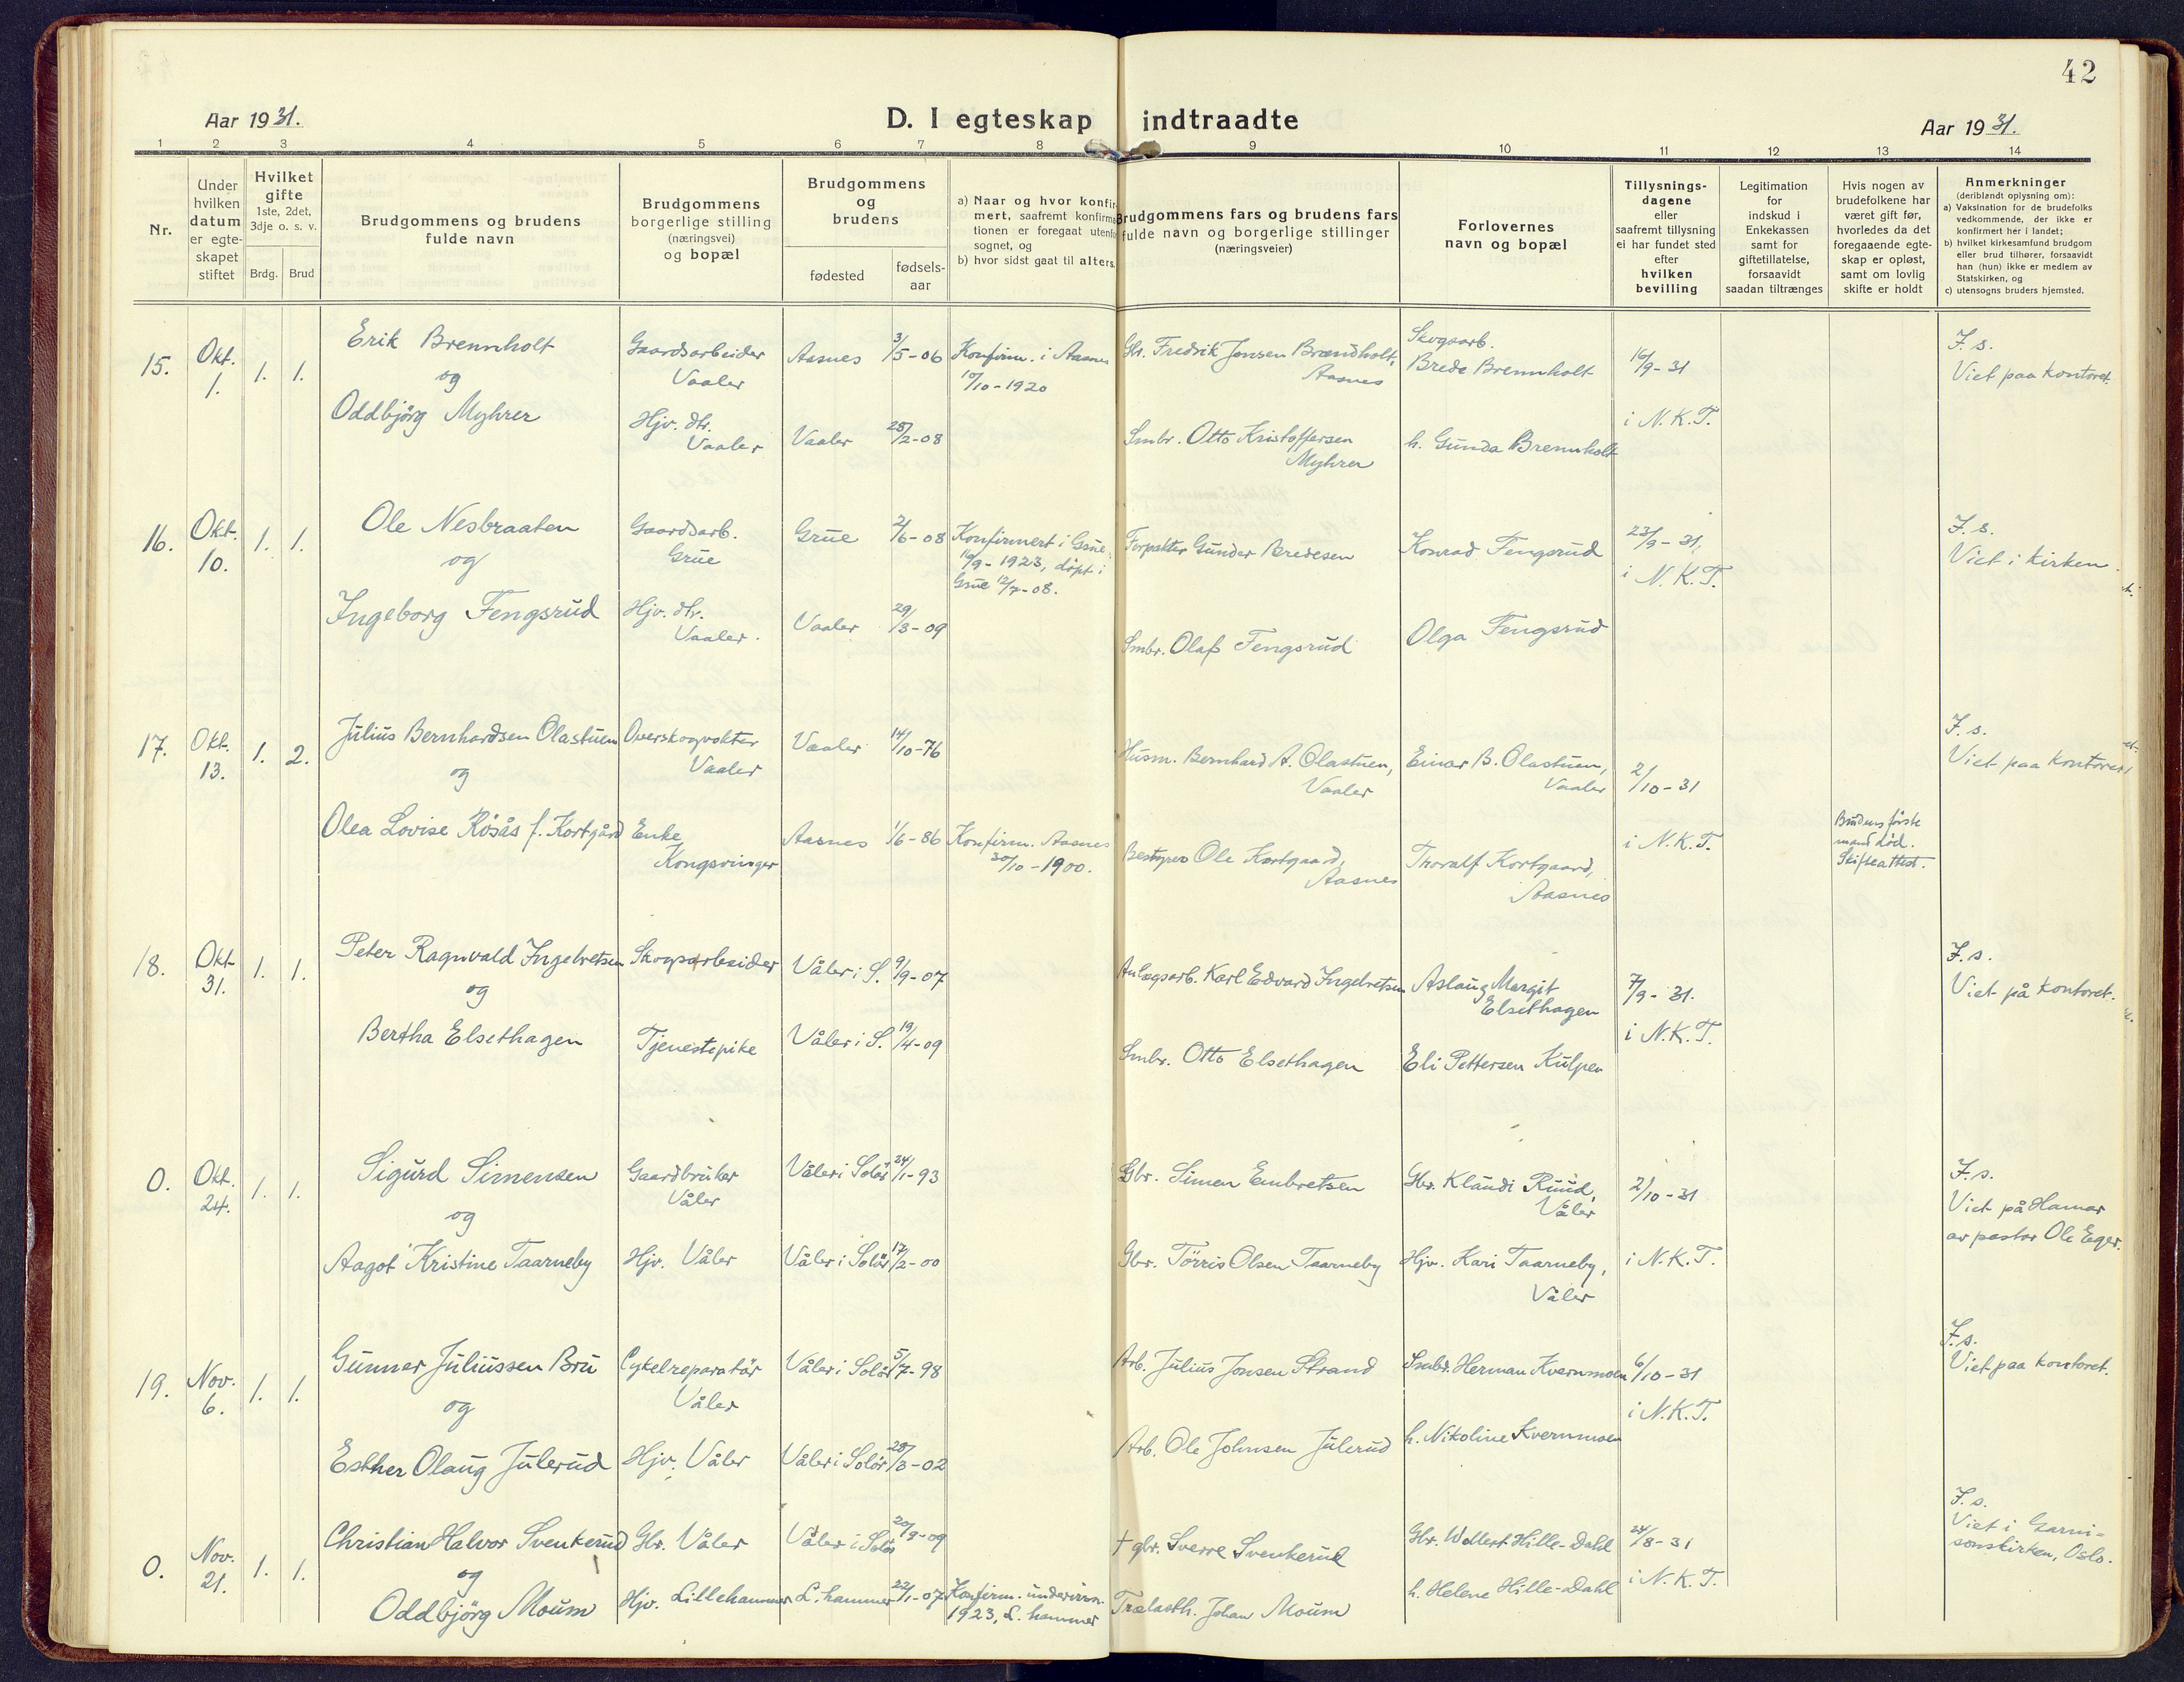 42
Aar 1931.
D. I egteskap indtraadte
Aar 1931.
1 2 3 4 5 6 7 8 9 10 11 12 13 14
Nr.
Under
hvilken
datum
er egte-
skapet
stiftet
Hvilket
gifte
1ste, 2det,
3dje o. s. v.
Brdg. Brud
Brudgommens og brudens
fulde navn
Brudgommens
borgerlige stilling
(næringsvei)
og bopæl
Brudgommens
og
brudens
fødested
fødsels-
aar
a) Naar og hvor konfir-
mert, saafremt konfirma
tionen er foregaat utenfo
sognet, og
b) hvor sidst gaat til alters.
Brudgommens fars og brudens fars
fulde navn og borgerlige stillinger
(næringsveier)
Forlovernes
navn og bopæl
Tillysnings-
dagene
eller
saafremt tillysning
ei har fundet sted
efter
hvilken
bevilling
Legitimation
for
indskud i
Enkekassen
samt for
giftetillatelse,
forsaavidt
saadan tiltrænges
Hvis nogen av
brudefolkene har
været gift før,
hvorledes da det
foregaaende egte-
skap er opløst,
samt om lovlig
skifte er holdt
Anmerkninger
(deriblandt oplysning om):
a) Vaksination for de brudefolks
vedkommende, der ikke er
konfirmert her i landet;
b) hvilket kirkesamfund brudgom
eller brud tilhører, forsaavidt
han (hun) ikke er medlem av
Statskirken, og
c) utensogns bruders hjemsted.
15.
Okt.
1.
1. 1.
Erik Brennholt
og
Oddbjörg Myhrer
Gaardsarbeider
Vaaler
Hjv. dtr.
Vaaler
Aasnes 3/5-06
Vaaler 28/2-08
Konfirm. i Aasnes
10/10-1920
Gbr. Fredrik Jonsen Brændholt,
Aasnes
Smbr. Otto Kristoffersen
Myhrer
Skogsarb.
Brede Brennholt
h. Gunda Brennholt
16/9-31
i N.K.T.
F.s.
Viet paa kontoret.
16.
Okt.
10.
1. 1.
Ole Nesbraaten
og
Ingeborg Fengsrud
Gaardsarb.
Grue
Hjv. dtr.
Vaaler.
Grue 2/6-08
Vaaler 29/3-09
Konfirmert i Grue
16/9-1923, döpt i
Grue 12/7-08.
Forpakter Gunder Bredesen
Smbr. Olaf Fengsrud
Konrad Fengsrud
Olga Fengsrud
23/9-31,
i N.K.T.
F.s.
Viet i kirken.
17.
Okt.
13.
1. 2.
Julius Bernhardsen Olastuen
og
Olea Lovise Rösås f. Kortgård
Overskogvokter
Vaaler
Enke
Kongsvinger
Vaaler 14/10-76
Aasnes 1/6-86
Konfirm. Aasnes
30/10-1900.
Husm. Bernhard A. Olastuen,
Vaaler
Bestyrer Ole Kortgaard,
Aasnes
Einar B. Olastuen,
Vaaler
Thoralf Kortgaard,
Aasnes
2/10-31
i N.K.T.
Brudens förste
mand död.
Skifteattest.
F.s.
Viet paa kontoret
18.
Okt
31.
1. 1.
Peter Ragnvald Ingebretsen
og
Bertha Elsethagen
Skogsarbeider
Tjenestepike
Våler i S. 9/9-07
Våler i S. 19/4-09
Anlægsarb. Karl Edvard Ingebretsen
Smbr. Otto Elsethagen
Aslaug Margit
Elsethagen
Eli Pettersen Kulpen
7/9-31.
i N.K.T.
F.s.
Viet på kontoret.
0.
Okt.
24.
1. 1.
Sigurd Simensen
og
Aagot Kristine Taarneby
Gaardbruker
Våler
Hjv. Våler
Våler i Solör 24/1-93
Våler i Solör 17/2-00
Gbr. Simen Embretsen
Gbr. Törris Olsen Taarneby
Gbr. Klaudi Ruud,
Våler
Hjv. Kari Taarneby,
Våler
2/10-31
i N.K.T.
F.s.
Viet på Hamar
av pastor Ole Eger.
19.
Nov.
6.
1. 1.
Gunnar Juliussen Bru
og
Esther Olaug Julerud
Cykelreparatör
Våler
Hjv. Våler
Våler i Solör 5/7-98
Våler i Solör 28/3-02
Arb. Julius Jonsen Strand
Arb. Ole Johnsen Julerud
Smbr. Herman Kvernmoen
h. Nikoline Kvernmoen
6/10-31
i N.K.T.
F.s.
Viet paa kontoret.
0.
Nov.
21.
1. 1.
Christian Halvor Svenkerud
og
Oddbjörg Moum
Gbr. Våler
Hjv. Lillehammer
Våler i Solör 20/9-09
L.hammer 22/1-07
Konfirm.
1923, L. hammer
† gbr. Sverre Svenkerud
Trælasth. Johan Moum
Gbr. Hille-Dahl
h. Helene Hille-Dahl
24/8-31
i N.K.T.
F.s.
Viet i Garni-
sonskirken, Oslo.